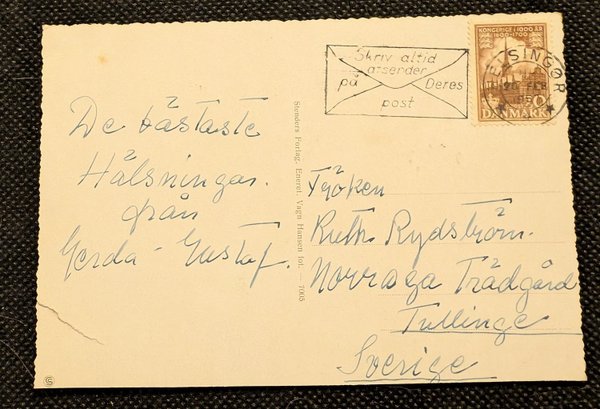 KONGERIGE I 1000 ÅR
1600-1700
DANMARK
Skriv altid
afsender
på Deres
post
HELSINGØR
FEB
De bästaste
Hälsningar.
från
Gerda - Gustaf.
Stenders Forlag. Eneret. Vagn Hansen fot. — 7005
Fröken
Ruth Rydström.
Norraga Trädgård
Tullinge
Sverige